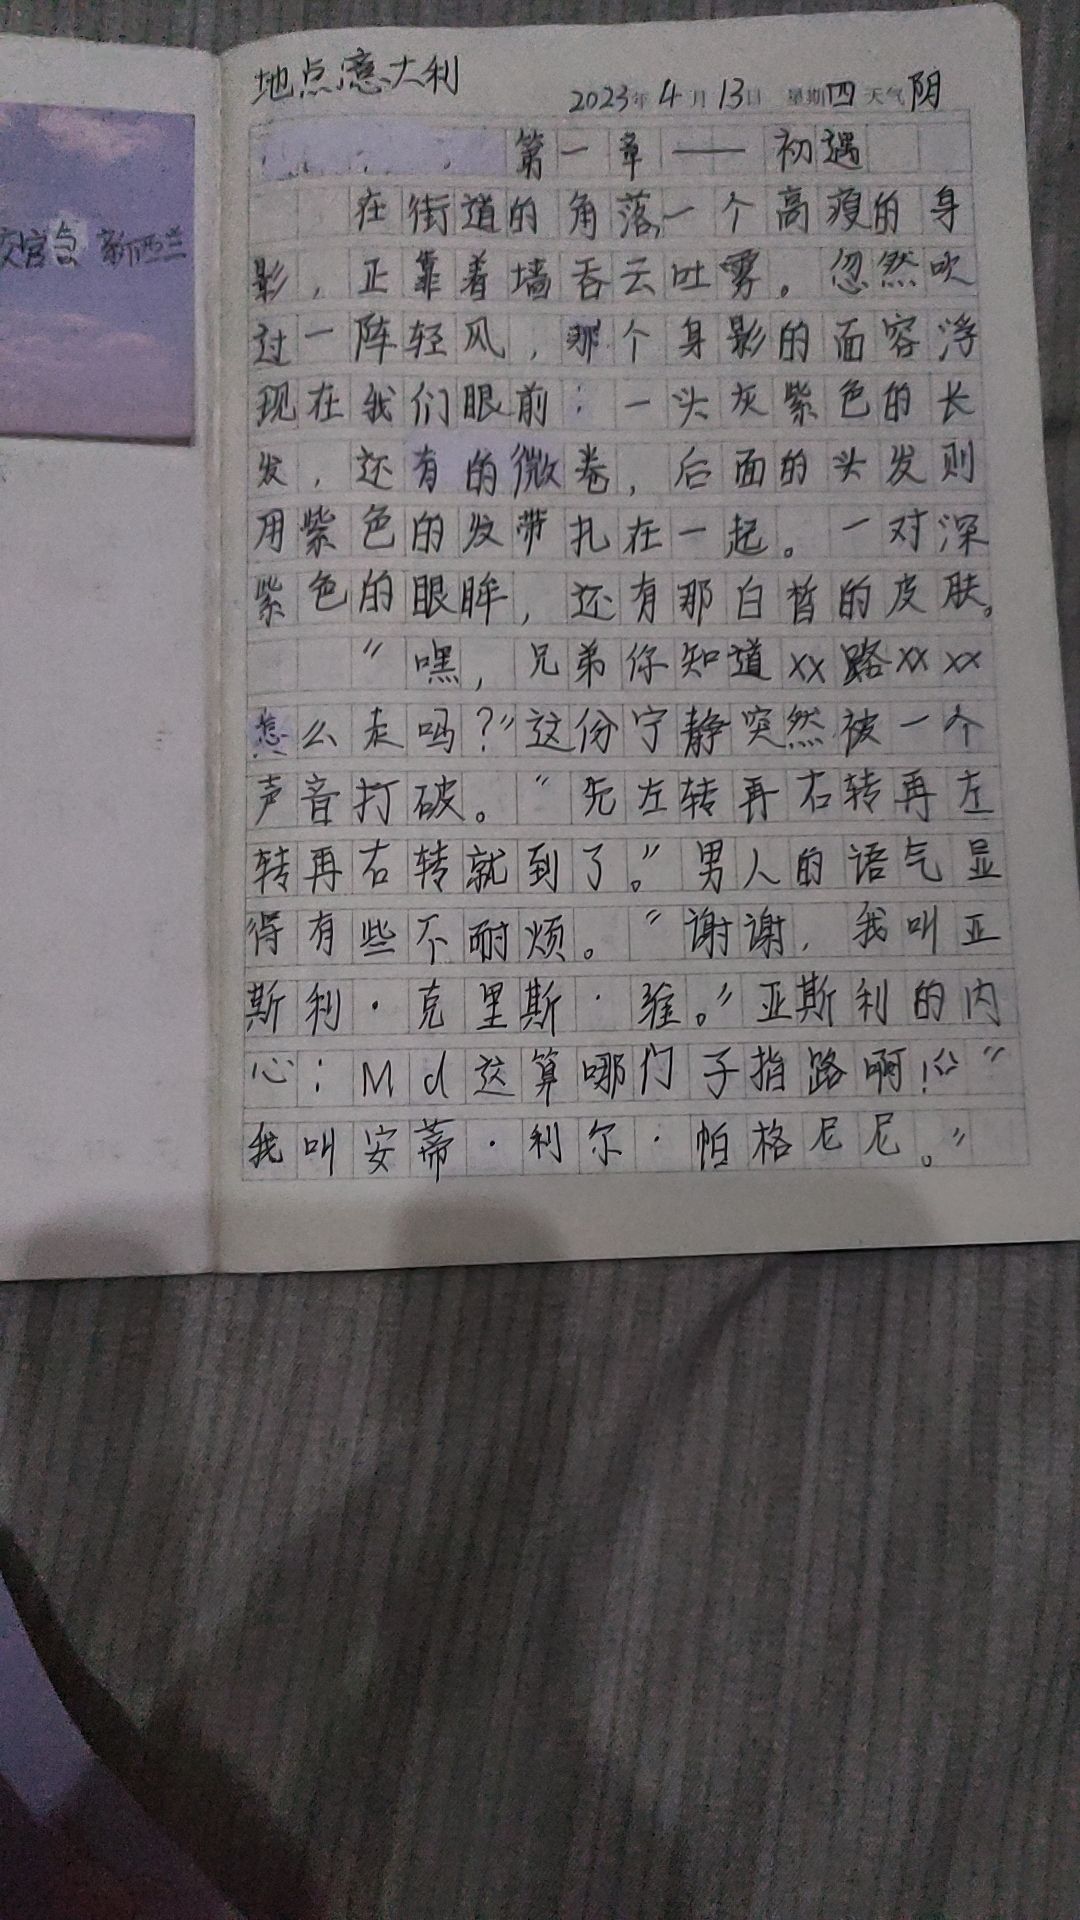 地点意大利
2023年4月13日 星期四 天气阴
第一章——初遇
在街道的角落,一个高瘦的身
影，正靠着墙吞云吐雾。忽然吹
过一阵轻风，那个身影的面容浮
现在我们眼前：一头灰紫色的长
发，还有的微卷，后面的头发则
用紫色的发带扎在一起。一对深
紫色的眼眸，还有那白皙的皮肤。
"嘿，兄弟你知道xx路xxxx
怎么走吗？"这份宁静突然被一个
声音打破。"先左转再右转再左
转再右转就到了。"男人的语气显
得有些不耐烦。"谢谢，我叫亚
斯利·克里斯·维。"亚斯利的内
心：Md这算哪门子指路啊！"
我叫安蒂·利尔·帕格尼尼。"
新西兰